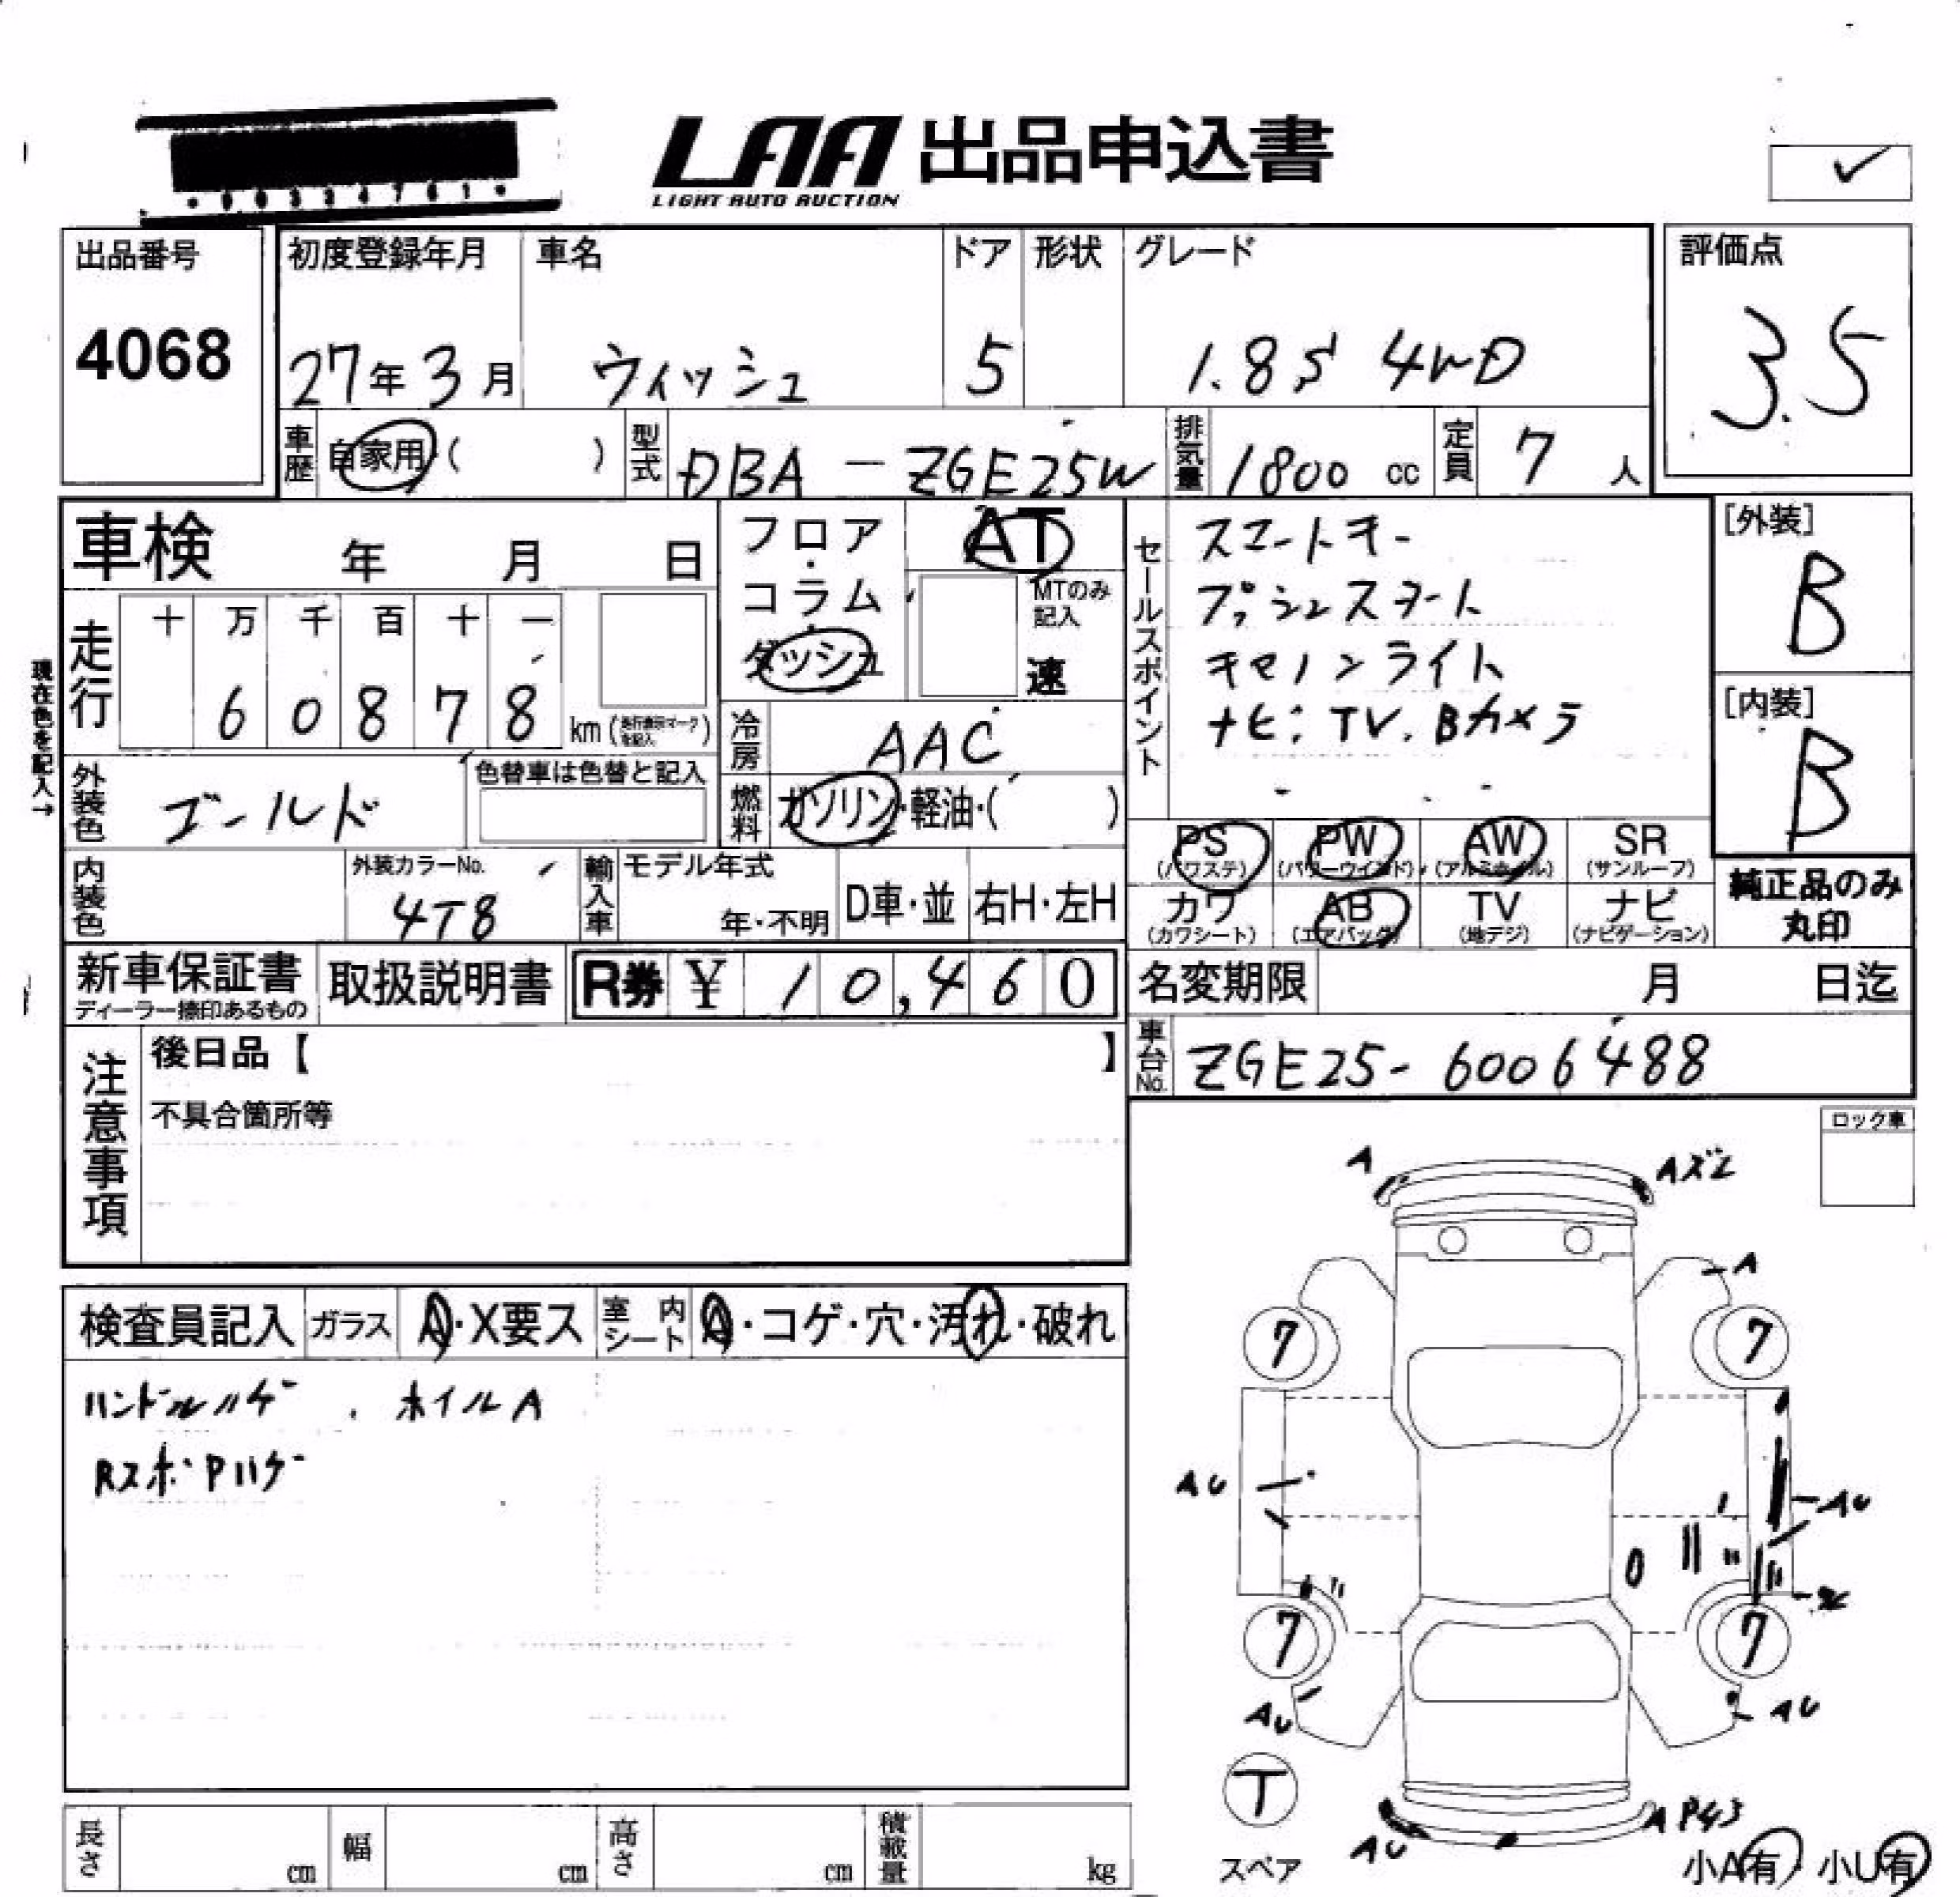 LAA 出品申込書
LIGHT AUTO AUCTION
出品番号
4068
初度登録年月
27年3月
車名
ウィッシュ
ドア
5
形状
グレード
1.8S 4WD
評価点
3.5
車歴 自家用 ( )
型式 DBA-ZGE25W
排気量 1800 cc
定員 7 人
車検 年 月 日
フロア・コラム・ダッシュ
AT
MTのみ記入
速
セールスポイント
スマートキー
プッシュスタート
キセノンライト
ナビ.TV.Bカメラ
[外装]
B
[内装]
B
現在色を記入→
走行
十 万 千 百 十 一
6 0 8 7 8
km(走行表示マークを記入)
冷房 AAC
外装色 ゴールド
色替車は色替と記入
燃料 ガソリン・軽油・( )
PS (パワステ)
PW (パワーウインド)
AW (アルミホイル)
SR (サンルーフ)
カワ (カワシート)
AB (エアバッグ)
TV (地デジ)
ナビ (ナビゲーション)
純正品のみ丸印
内装色
外装カラーNo.
4T8
輸入車
モデル年式
年・不明
D車・並
右H・左H
新車保証書
ディーラー捺印あるもの
取扱説明書
R券 ¥ 10,460
名変期限 月 日迄
車台No. ZGE25-6006488
注意事項
後日品【 】
不具合箇所等
ロック車
A
Aズレ
A
7
7
検査員記入
ガラス A・X要ス
室内シート A・コゲ・穴・汚れ・破れ
ハンドルハゲ . ホイルA
RスポP ハゲ
AU
AU
7
7
AU
AU
T
スペア
AU
A Pキズ
小A有 小U有
長さ cm
幅 cm
高さ cm
積載量 kg